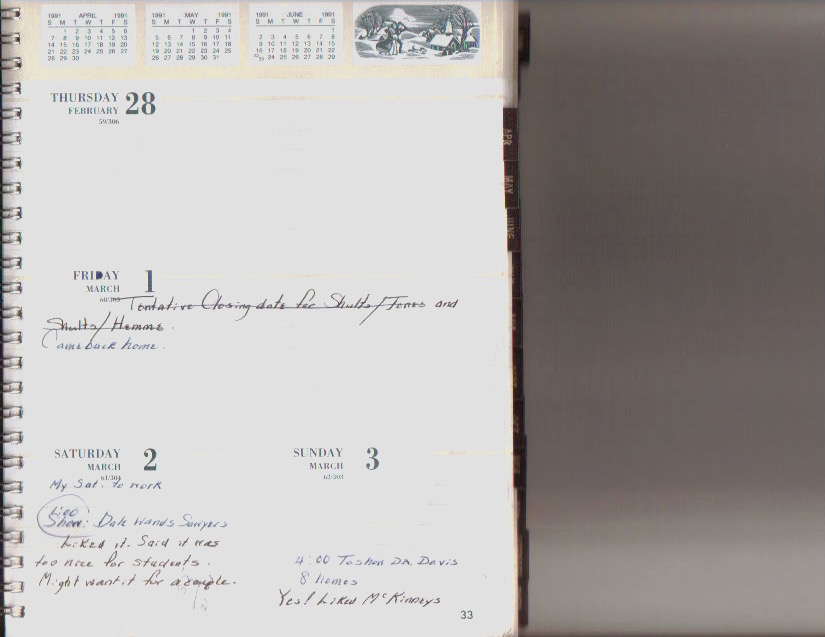 1991 APRIL 1991
S M T W T F S
1 2 3 4 5 6
7 8 9 10 11 12 13
14 15 16 17 18 19 20
21 22 23 24 25 26 27
28 29 30
1991 MAY 1991
S M T W T F S
1 2 3 4
5 6 7 8 9 10 11
12 13 14 15 16 17 18
19 20 21 22 23 24 25
26 27 28 29 30 31
1991 JUNE 1991
S M T W T F S
1
2 3 4 5 6 7 8
9 10 11 12 13 14 15
16 17 18 19 20 21 22
23/30 24 25 26 27 28 29
THURSDAY 28
FEBRUARY
59/306
FRIDAY 1
MARCH
60/305
Tentative Closing date for Shults/Jones and
Shults/Hemme.
Came back home.
SATURDAY 2
MARCH
61/304
My Sat. to work
1:00
Show: Dale Wands Sawyers
Liked it. Said it was
too nice for students.
Might want it for a couple.
SUNDAY 3
MARCH
62/303
4:00 To show Dr. Davis
8 homes
Yes! Liked McKinneys
33
APR
MAY
JUNE